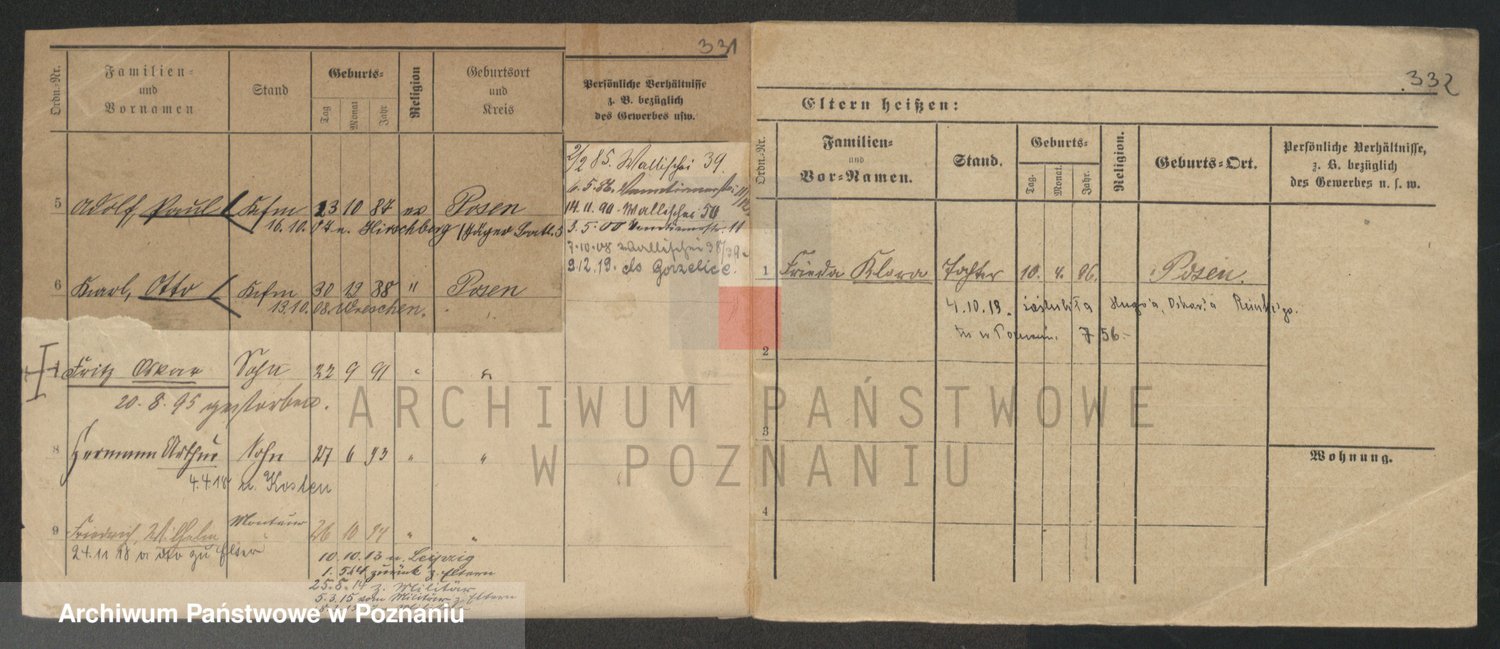 331
Ordn.-Nr. Familien- und Vornamen Stand Geburts- Tag Monat Jahr Religion Geburtsort und Kreis Persönliche Verhältnisse z. B. bezüglich des Gewerbes usw.
2/2 85. Wallischei 39.
14.11.90 Wallischei
3.5.00
7.10.08 Wallischei 38/39
9.12.19. do Gorzelice.
5 Adolf Paul Kfm 23 10 87 ev Posen
16.10.07 n. Hirschberg
6 Karl, Otto Kfm 30 12 88 " Posen
13.10.08. Wreschen.
Fritz Oskar Sohn 22 9 91 " "
20.8.95 gestorben.
8 Hermann Arthur Sohn 27 6 93 " "
4.4.18 n. Kosten
9 Friedrich, Wilhelm Monteur 26 10 94 " "
24.11.18 zu Elter
10.10.13 n. Leipzig
zurück z. Eltern
25.8.14 z. Militär
5.3.15 vom Militär z. Eltern
332
Eltern heißen:
Ordn.-Nr. Familien- und Vor-Namen. Stand. Geburts- Tag. Monat. Jahr. Religion. Geburts-Ort. Persönliche Verhältnisse, z. B. bezüglich des Gewerbes u. s. w.
1 Frieda Klora Tochter 10. 4. 96. Posen.
4.10.19. zaślubiła Hugo'a, Oskar'a
756-
2
3
Wohnung.
4
ARCHIWUM PAŃSTWOWE
W POZNANIU
Archiwum Państwowe w Poznaniu